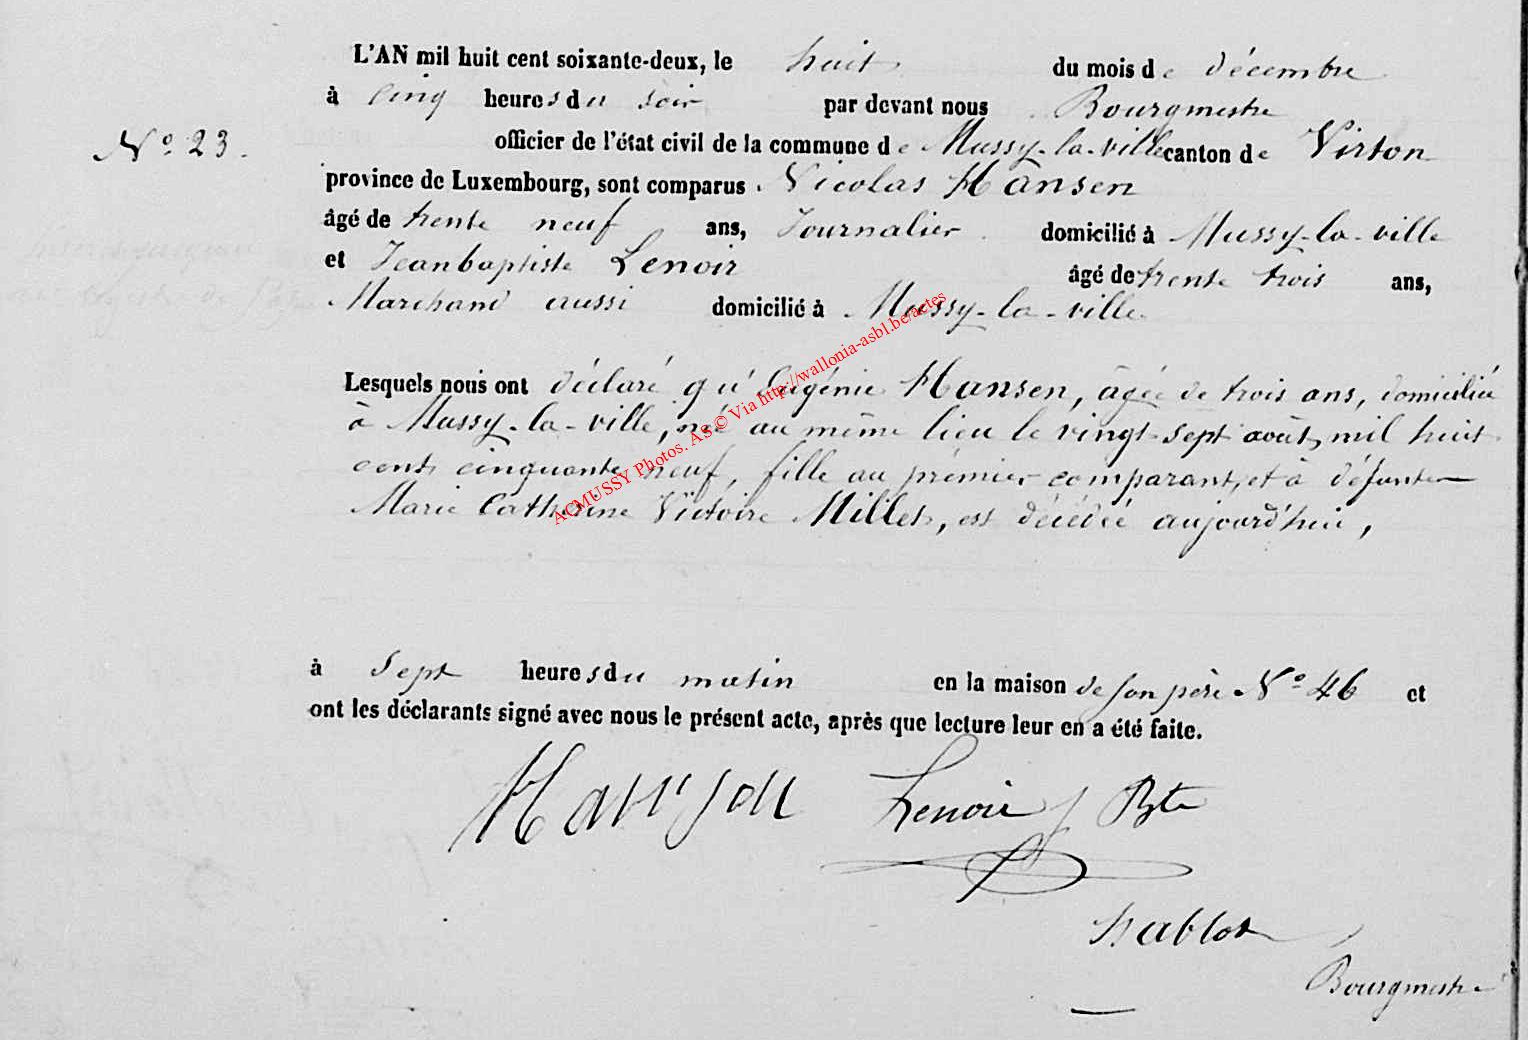 L'AN mil huit cent soixante-deux, le huit du mois de décembre
à cinq heures du soir par devant nous Bourgmestre
N° 23.
officier de l'état civil de la commune de Mussy-la-ville canton de Virton
province de Luxembourg, sont comparus Nicolas Hansen
âgé de trente neuf ans, Journalier domicilié à Mussy-la-ville
et Jeanbaptiste Lenoir âgé de trente trois ans,
Marchand aussi domicilié à Mussy-la-ville
Lesquels nous ont déclaré qu'Eugénie Hansen, âgée de trois ans, domiciliée
à Mussy-la-ville, née au même lieu le vingt-sept août mil huit
cent cinquante neuf, fille au prémier comparant, et à défunte
Marie Catherine Victoire Millet, est décédée aujourd'hui,
à sept heures du matin en la maison de son père N° 46 et
ont les déclarants signé avec nous le présent acte, après que lecture leur en a été faite.
Hansen Lenoir J Bte
Hablot
Bourgmestre
ACMUSSY Photos. AS.© Via http://wallonia-asbl.be/actes